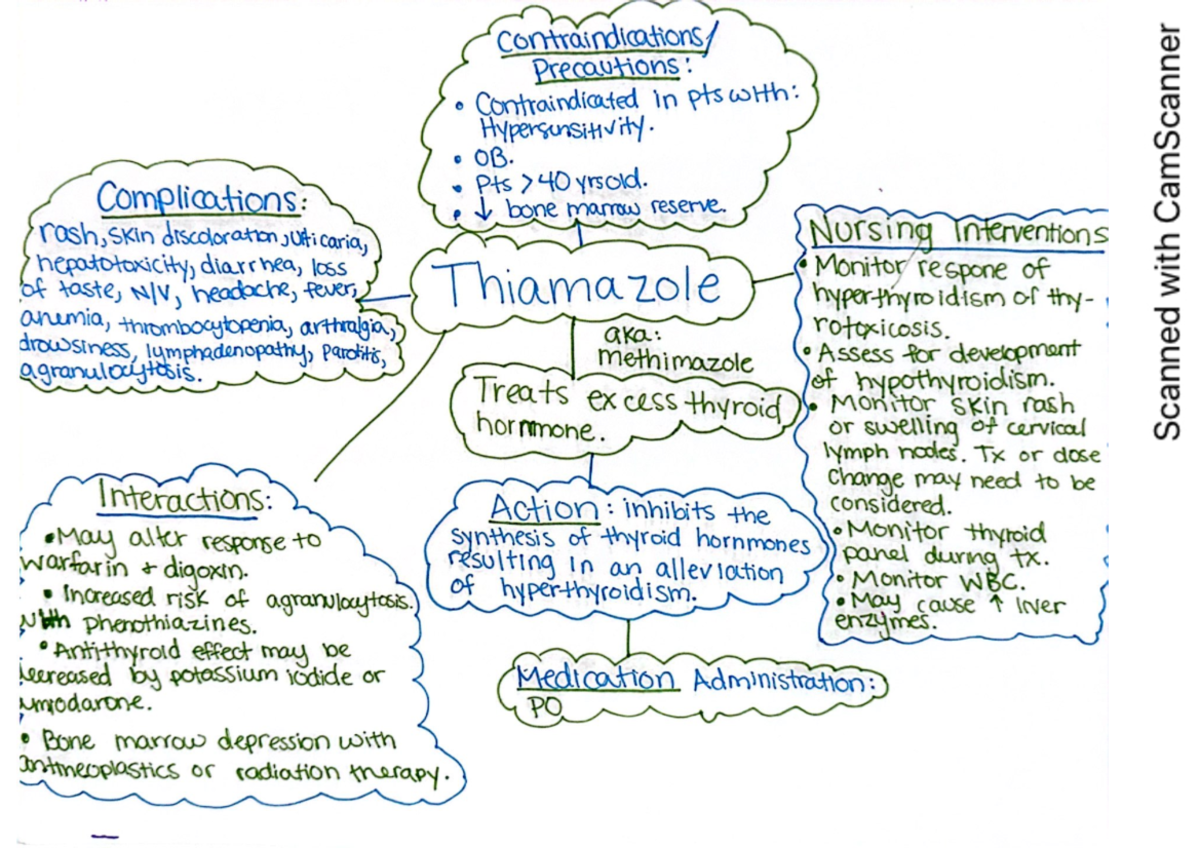 Contraindications/
Precautions:
• Contraindicated in pts with:
Hypersensitivity.
• OB.
• Pts >40 yrs old.
• ↓ bone marrow reserve.
Complications:
rash, skin discoloration, urticaria,
hepatotoxicity, diarrhea, loss
of taste, N/V, headache, fever,
anemia, thrombocytopenia, arthralgia,
drowsiness, lymphadenopathy, parotitis,
agranulocytosis.
Thiamazole
aka:
methimazole
Treats excess thyroid
hormone.
Nursing Interventions
• Monitor respone of
hyperthyroidism of thy-
rotoxicosis.
• Assess for development
of hypothyroidism.
• Monitor skin rash
or swelling of cervical
lymph nodes. Tx or dose
change may need to be
considered.
• Monitor thyroid
panel during tx.
• Monitor WBC.
• May cause ↑ liver
enzymes.
Interactions:
• May alter response to
warfarin + digoxin.
• Increased risk of agranulocytosis.
with phenothiazines.
• Antithyroid effect may be
decreased by potassium iodide or
amiodarone.
• Bone marrow depression with
antineoplastics or radiation therapy.
Action: inhibits the
synthesis of thyroid hornmones
resulting in an alleviation
of hyper-thyroidism.
Medication Administration:
PO
Scanned with CamScanner